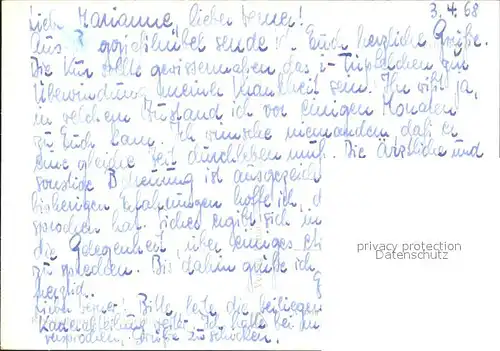 3.4.68
Liebe Marianne, lieber Werner!
Aus sende ich Euch herzliche Grüße.
Die Kur sollte gewissermaßen das i-Tüpfelchen zur
Überwindung meiner Krankheit sein. Ihr wißt ja,
in welchem Zustand ich vor einigen Monaten
zu Euch kam. Ich wünsche niemandem, daß er
eine gleiche Zeit durchleben muß. Die Ärztliche und
sonstige Betreuung ist ausgezeich
bisherigen Erfahrungen hoffe ich, d
sprochen hat. sicher ergibt sich in
die Gelegenheit, über einiges
zu sprechen. Bis dahin grüße ich
herzlich
Lieber Werner! Bitte, leite die beiliegen
Kaderabteilung weiter. Ich hatte bei
versprochen, Grüße zu schicken.
privacy protection
Datenschutz